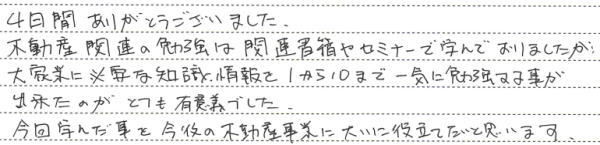 4日間ありがとうございました。
不動産関連の勉強は関連書籍やセミナーで学んでおりましたが、
大家業に必要な知識、情報を1から10まで一気に勉強する事が
出来たのがとても有意義でした。
今回学んだ事を今後の不動産事業に大いに役立てたいと思います。